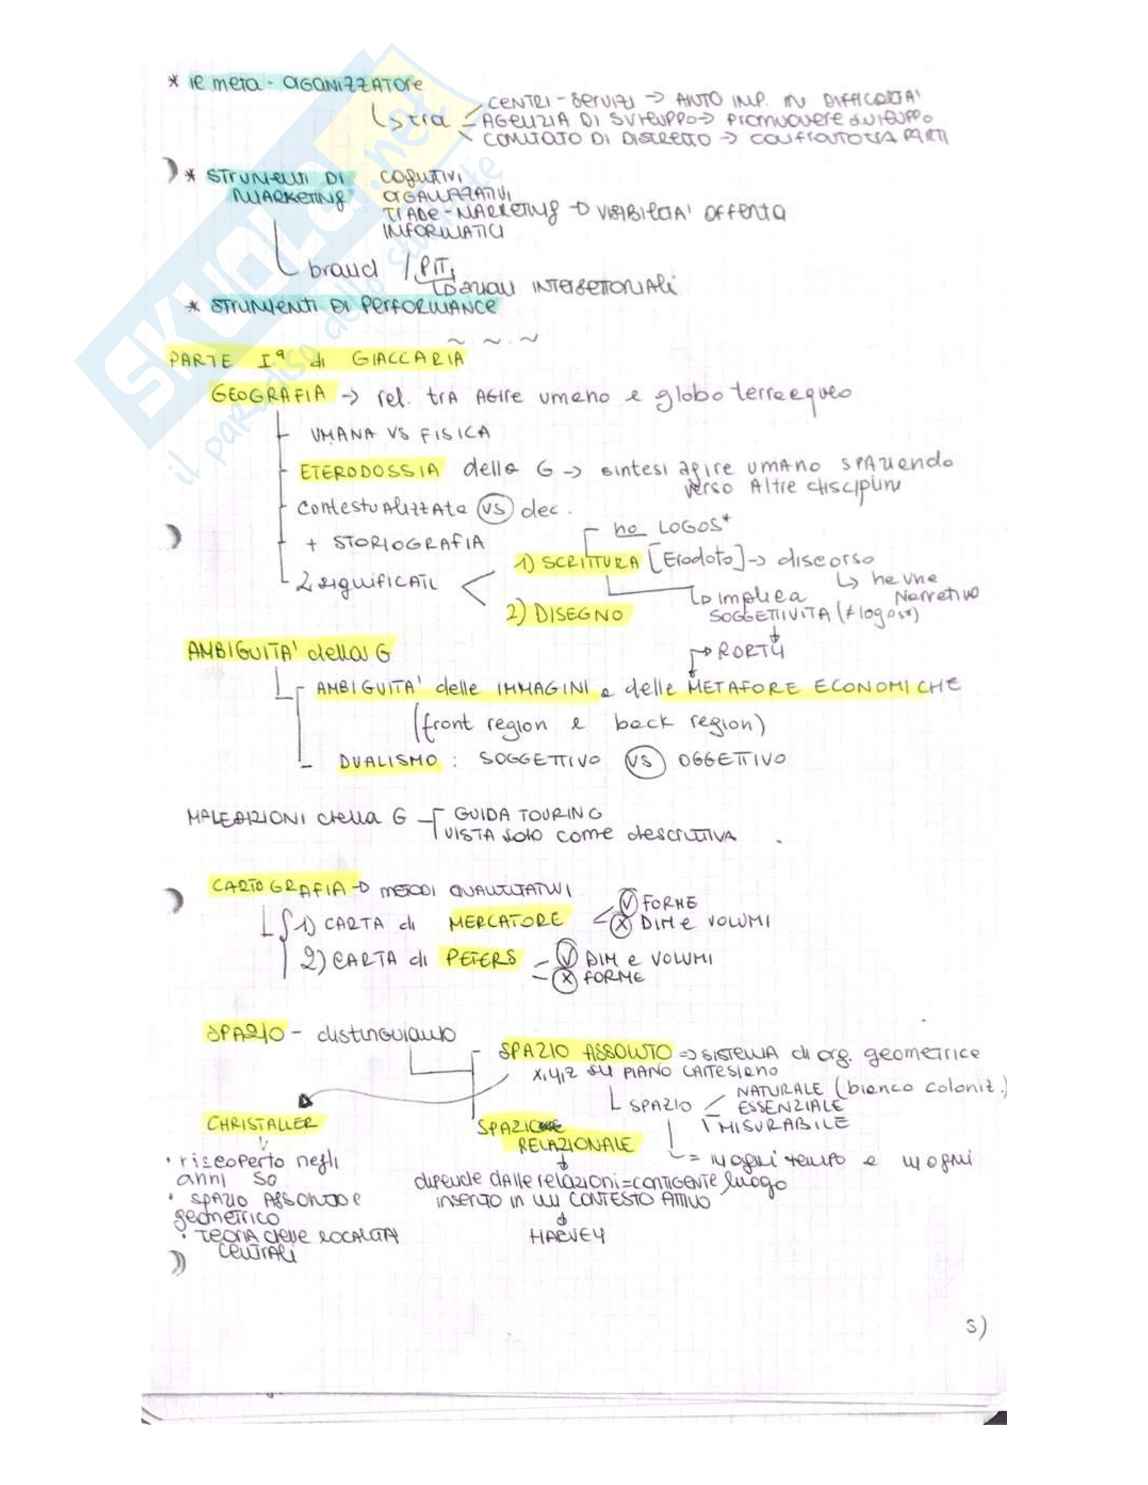 * IL meta - ORGANIZZATORE
CENTRI - SERVIZI → AIUTO IMP. IN DIFFICOLTA'
↳ stra = AGENZIA DI SVILUPPO → PROMUOVERE SVILUPPO
COMITATO DI DISTRETTO → CONFRONTO TRA PARTI
* STRUMENTI DI MARKETING
COGNITIVI
ORGANIZZATIVI
TRADE - MARKETING → VISIBILITA' OFFERTA
INFORMATICI
brand / PIT,
↳ azioni INTERSETTORIALI
* STRUMENTI DI PERFORMANCE
~ ~ . ~
PARTE Iª di GIACCARIA
GEOGRAFIA → rel. trA AGIRE umano e globo terracqueo
UMANA VS FISICA
ETERODOSSIA della G → sintesi agire UMANO SPAZIANDO
verso Altre discipline
contestuAlizzata VS dec.
no LOGOS*
+ STORIOGRAFIA
1) SCRITTURA [Erodoto] → discorso
2 significati
↳ implica
↳ ne
Narrativo
2) DISEGNO
SOGGETTIVITA (≠ logos*)
AMBIGUITA' della G
→ RORTY
AMBIGUITA' delle IMMAGINI e delle METAFORE ECONOMICHE
(front region e back region)
DUALISMO : SOGGETTIVO VS OGGETTIVO
MALEDIZIONI della G
GUIDA TOURING
VISTA solo come descrittiva
CARTOGRAFIA → METODI QUALITATIVI
1) CARTA di MERCATORE
V FORME
X DIM e VOLUMI
2) CARTA di PETERS
V DIM e VOLUMI
X FORME
SPAZIO - distinguiamo
SPAZIO ASSOLUTO → SISTEMA di org. geometrica
x,y,z su PIANO CARTESIANO
NATURALE (bianco coloniz.)
↳ SPAZIO = ESSENZIALE
MISURABILE
CHRISTALLER
SPAZIO
RELAZIONALE
= in ogni tempo e in ogni
• riscoperto negli
anni 50
dipende dalle relazioni = CONTIGENTE luogo
• SPAZIO ASSOLUTO e
inserito in un CONTESTO ATTIVO
geometrico
• TEORIA delle LOCALITA'
HARVEY
CENTRALI
5)
SKUOLA.net
il paradiso dello studente